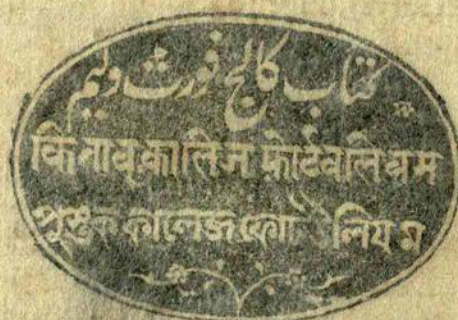 کتاب کالج فورٹ ولیم
किताब् कालिज फोर्टवलियम
পুস্তক কালেজ ফোর্ট